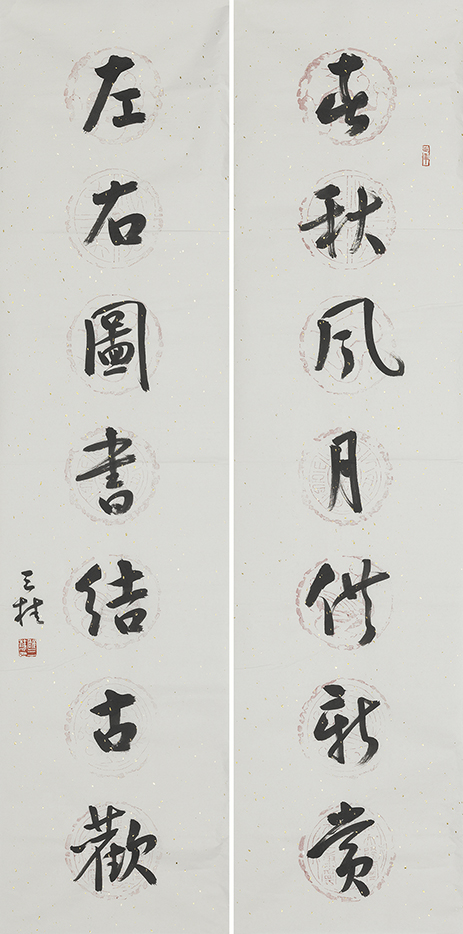 春秋風月供新賞
左右圖書結古歡
三桂